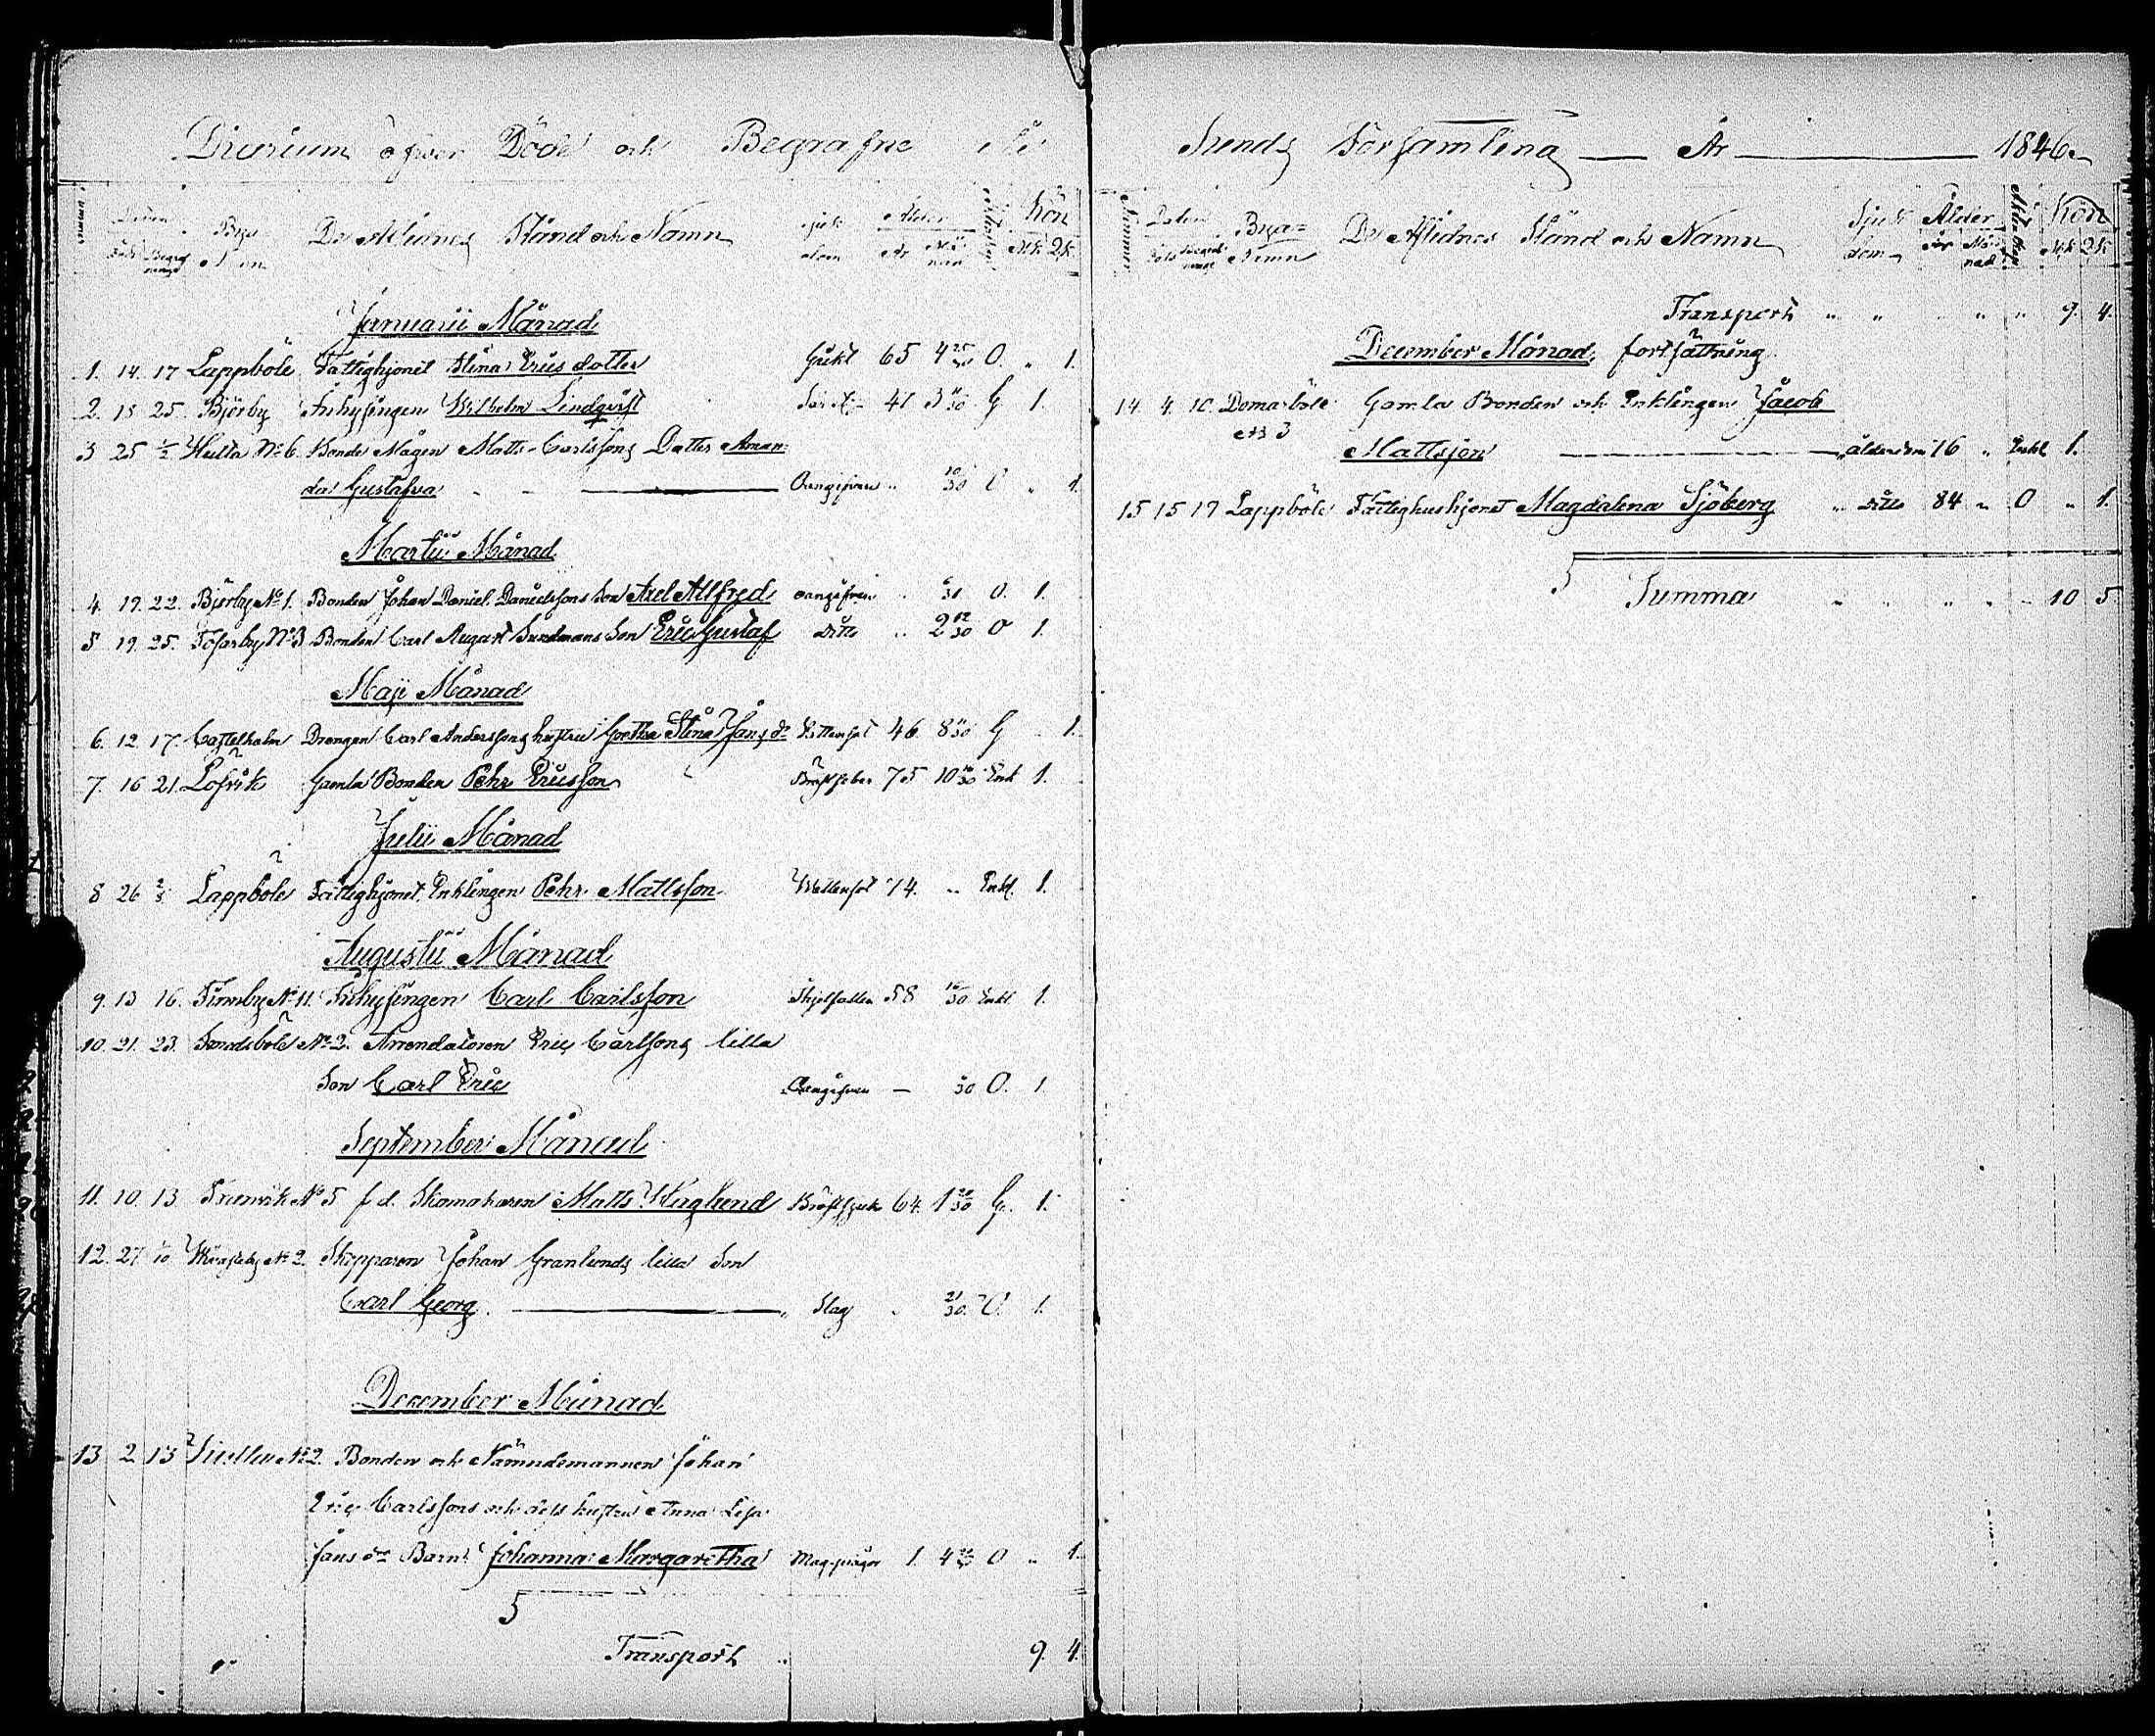 Diarium öfver Döde och Begrafne i
Nummer Datum Bya- De Aflidnes Stånd och Namn Sjuk- Ålder Kön
Döds Begraf- Namn dom År Må- Mk Qk
nings nad
Januarii Månad
1. 14. 17 Lappböle Fattighjonet Stina Ericsdotter Gikt 65 4 25/30 O. " 1.
2. 18 25. Björby Inhysingen Wilhelm Lindqvist 41 3 G 1.
3 25 1/2 Hulta No 6. Bonde Mågen Matts Carlssons Dotter Aman-
da Gustafva Oangifven " 10/30 O " 1.
Martii Månad
4. 19. 22. Björby No 1. Bonden Johan Daniel Danielssons Son Axel Allfred oangifven O. 1.
5 19. 25. Tosarby No 3 Bonden Carl August Sundmans Son Eric Gustaf Ditto " 2 12/30 O 1.
Maji Månad
6. 12. 17. Castelholm Drengen Carl Anderssons hustru Gretha Stina Jansdr Wattensot 46 8 G 1.
7. 16 21. Löfvik Gamla Bonden Pehr Ericsson Bröstfeber 75 10 Enk 1.
Julii Månad
8 26 2/8 Lappböle Fattighjonet Enklingen Pehr Mattsson Wattensot 74. " Enkl. 1.
Augustii Månad
9. 13 16. Finnby No 11. Inhysingen Carl Carlsson 58 Enkl. 1.
10. 21. 23. Sundsböle No 2. Arrendatoren Eric Carlssons lilla
Son Carl Eric Oangifven — O. 1.
September Månad
11. 10. 13 No 5 f. d. Skomakaren Matts Haglund Bröstsjuk 64. 1 G. 1.
12. 27 1/10 No 2. Skepparen Johan Granlunds lilla Son
Carl Georg. Slag 21/30. O. 1.
December Månad
13 2. 13 No 2. Bonden och Nämndemannen Johan
Eric Carlssons och dess hustru Anna Lisa
Jansdr Barn Johanna Margaretha Magplågor 1. 4 O " 1.
5
Transport " 9. 4.
Sunds Församling — År — 1846.
Nummer Datum Bya- De Aflidnes Stånd och Namn Sjuk- Ålder Kön
Döds Begraf- Namn dom År Må- Mk Qk
nings nad
Transport " " " " 9. 4.
December Månad, fortsättning.
14. 4. 10. Domarböle Gamla Bonden och Enklingen Jacob
No 3
Mattsson ålderdom 76 " Enkl 1.
15 15 19 Lappböle Fattighushjonet Magdalena Sjöberg " Ditto 84 " O " 1.
5
Summa " " " " 10 5